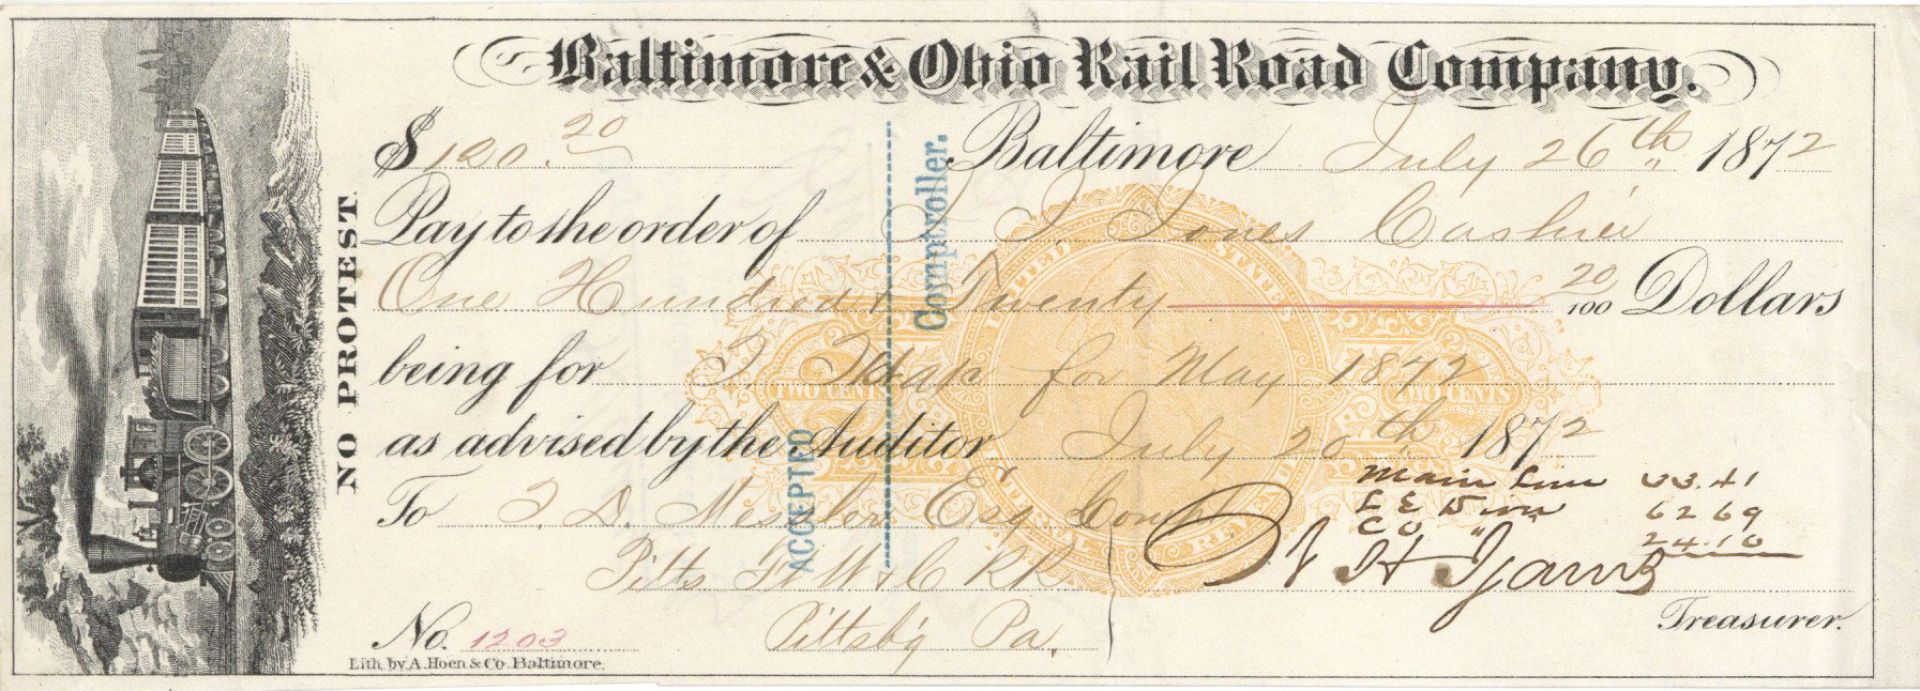 Baltimore & Ohio Rail Road Company.
$ 120.20
Baltimore July 26th 1872
Pay to the order of J. J. Jones Cashier
One Hundred & Twenty 20/100 Dollars
being for for May 1872
as advised by the Auditor July 20th 1872
To J. D. Messler Esq Comp
Pitts Ft W & C RR
Pittsbg Pa.
Main Line 33.41
L E Divn 62 69
CO " 24.10
W H Ijams
Treasurer.
No. 1203
Lith. by A. Hoen & Co. Baltimore.
NO PROTEST.
ACCEPTED
Comptroller.
UNITED STATES
INTERNAL REVENUE
2
2
TWO CENTS
TWO CENTS